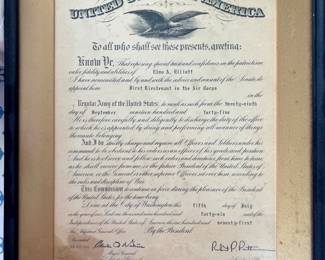 UNITED STATES OF AMERICA
To all who shall see these presents, greeting:
Know Ye, That reposing special trust and confidence in the patriotism
valor, fidelity and abilities of Elmo A. Elliott
I have nominated and by and with the advice and consent of the Senate, do
appoint him First Lieutenant in the Air Corps in the
Regular Army of the United States to rank as such from the twenty-ninth
day of September nineteen hundred and forty-five
He is therefore carefully and diligently to discharge the duty of the office
to which he is appointed by doing and performing all manner of things
thereunto belonging.
And I do strictly charge and require all Officers and Soldiers under his
command to be obedient to his orders as an officer of his grade and position.
And he is to observe and follow such orders and directions, from time to time,
as he shall receive from me, or the future President of the United States of
America, or the General or other superior Officers set over him, according to
the rules and discipline of War.
This Commission to continue in force during the pleasure of the President
of the United States for the time being.
Done at the City of Washington this fifth day of July
in the year of our Lord one thousand nine hundred and forty-six and of the
Independence of the United States of America the one hundred and seventy-first
By the President:
Major General